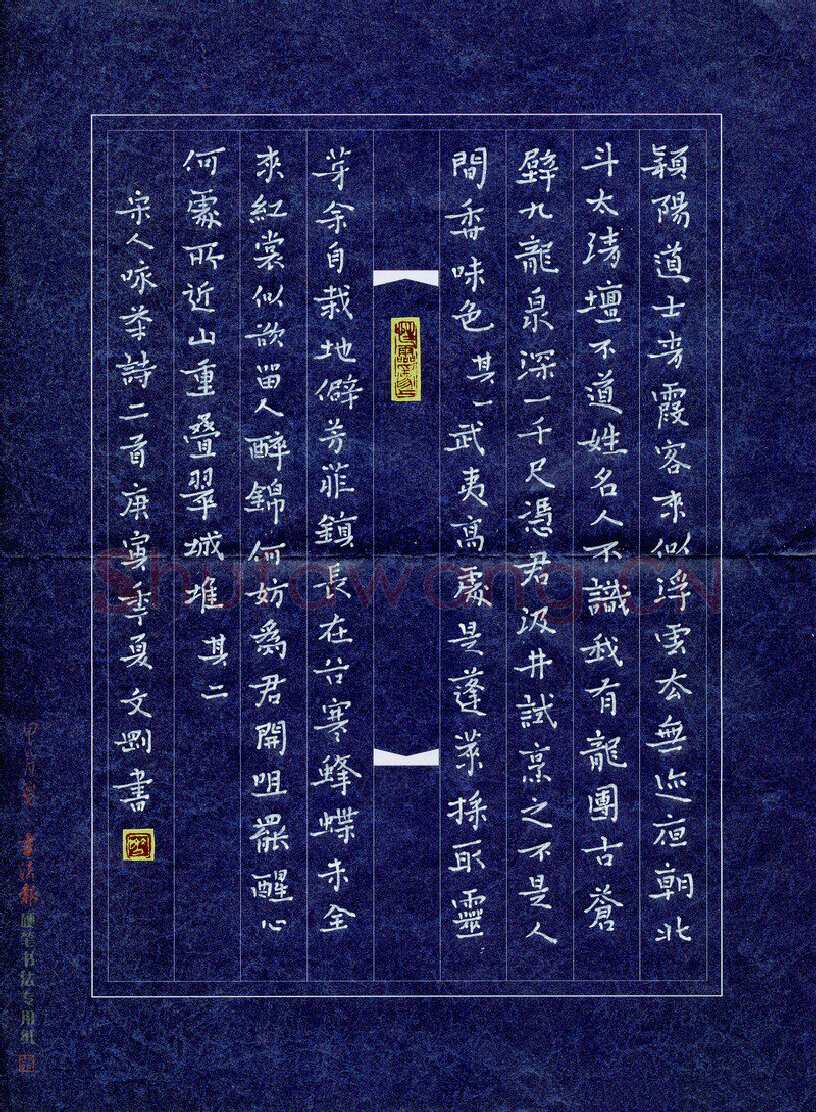 潁陽道士青霞客來似浮雲去無迹夜朝北
斗太清壇不道姓名人不識我有龍團古蒼
璧九龍泉深一千尺憑君汲井試烹之不是人
間香味色 其一 武夷高處是蓬萊採取靈
芽余自栽地僻芳菲鎮長在谷寒蜂蝶未全
來紅裳似欲留人醉錦何妨為君開咀罷醒心
何處所近山重疊翠城堆 其二
宋人咏茶詩二首庚寅季夏文剛書
書法報硬笔书法专用纸
Shufawang.CN